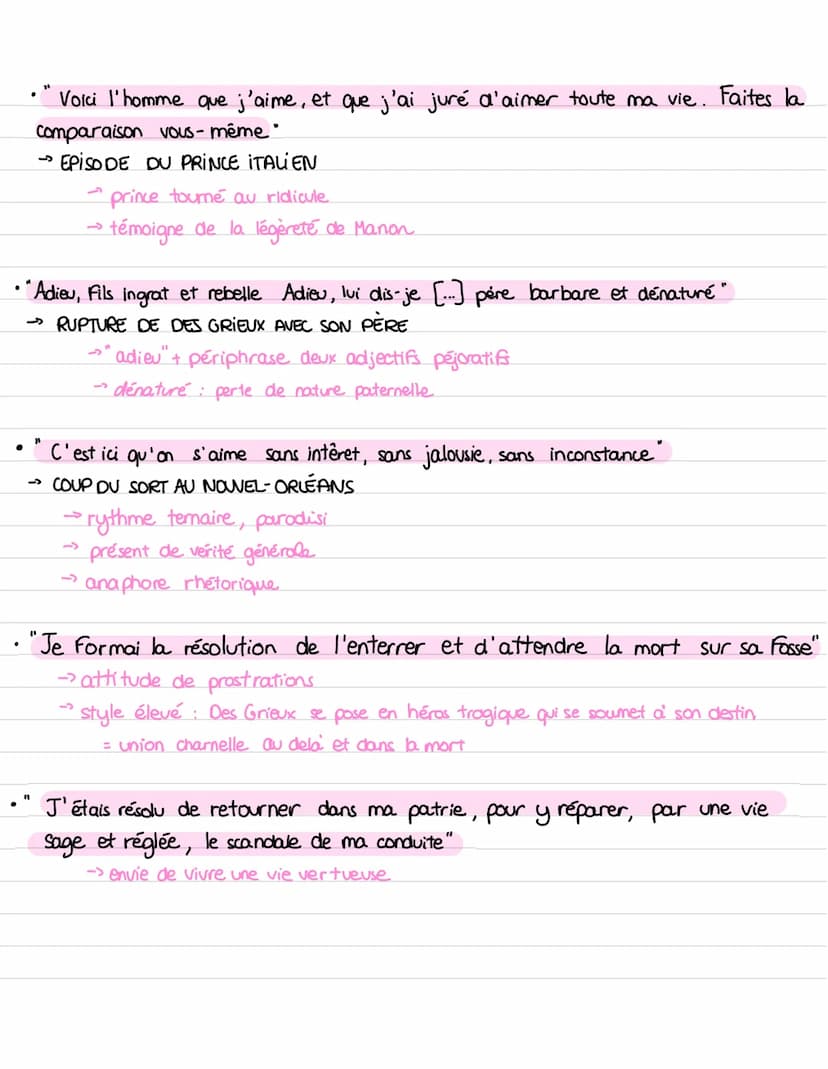 • " Voici l'homme que j'aime, et que j'ai juré d'aimer toute ma vie. Faites la
comparaison vous-même "
→ EPISODE DU PRINCE ITALIEN
→ prince tourné au ridicule
→ témoigne de la légèreté de Manon
• "Adieu, fils ingrat et rebelle Adieu, lui dis-je [...] père barbare et dénaturé"
→ RUPTURE DE DES GRIEUX AVEC SON PÈRE
→ "adieu" + périphrase deux adjectifs péjoratifs
→ dénaturé : perte de nature paternelle
• " C'est ici qu'on s'aime sans intêret, sans jalousie, sans inconstance"
→ COUP DU SORT AU NOUVEL-ORLÉANS
→ rythme ternaire, parodisi
→ présent de vérité générale
→ anaphore rhétorique
• "Je formai la résolution de l'enterrer et d'attendre la mort sur sa fosse"
→ attitude de prostrations
→ style élevé : Des Grieux se pose en héros tragique qui se soumet à son destin
= union charnelle au delà et dans la mort
• " J'étais résolu de retourner dans ma patrie, pour y réparer, par une vie
sage et réglée, le scandale de ma conduite"
→ envie de vivre une vie vertueuse